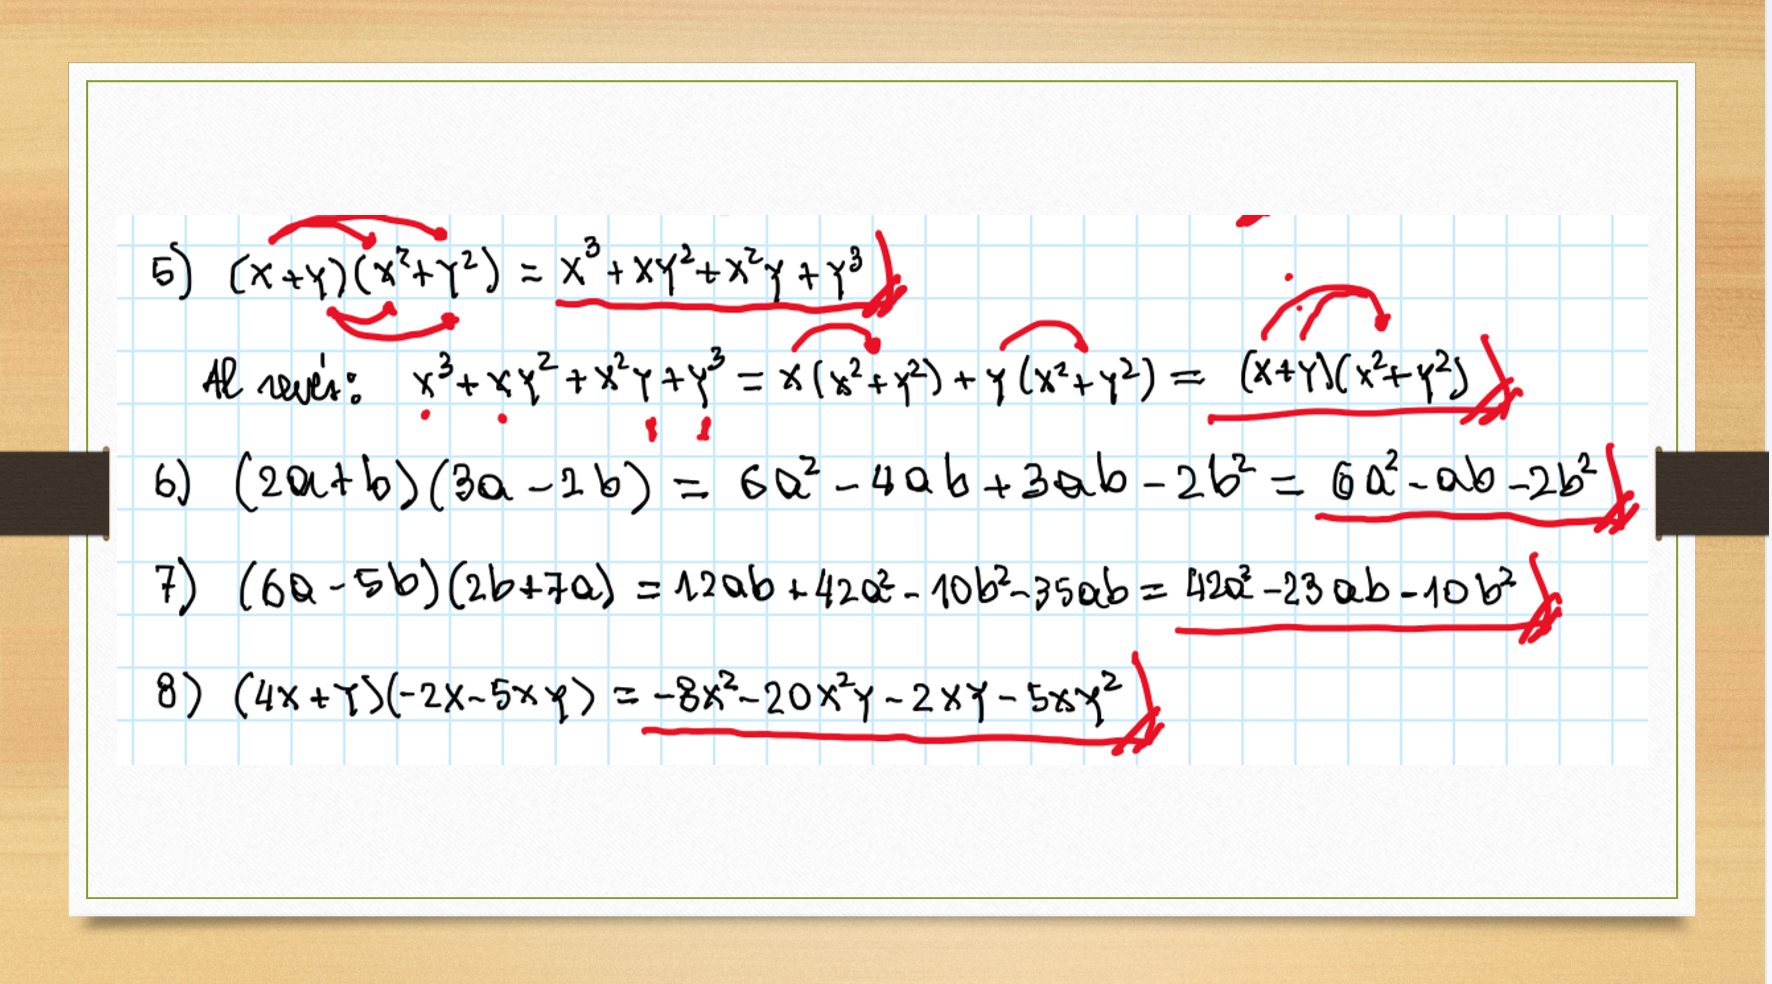 5) (x+y)(x²+y²) = x³+xy²+x²y+y³
Al revés: x³+xy²+x²y+y³ = x(x²+y²)+y(x²+y²) = (x+y)(x²+y²)
6) (2a+b)(3a-2b) = 6a²-4ab+3ab-2b² = 6a²-ab-2b²
7) (6a-5b)(2b+7a) = 12ab+42a²-10b²-35ab = 42a²-23ab-10b²
8) (4x+y)(-2x-5xy) = -8x²-20x²y-2xy-5xy²